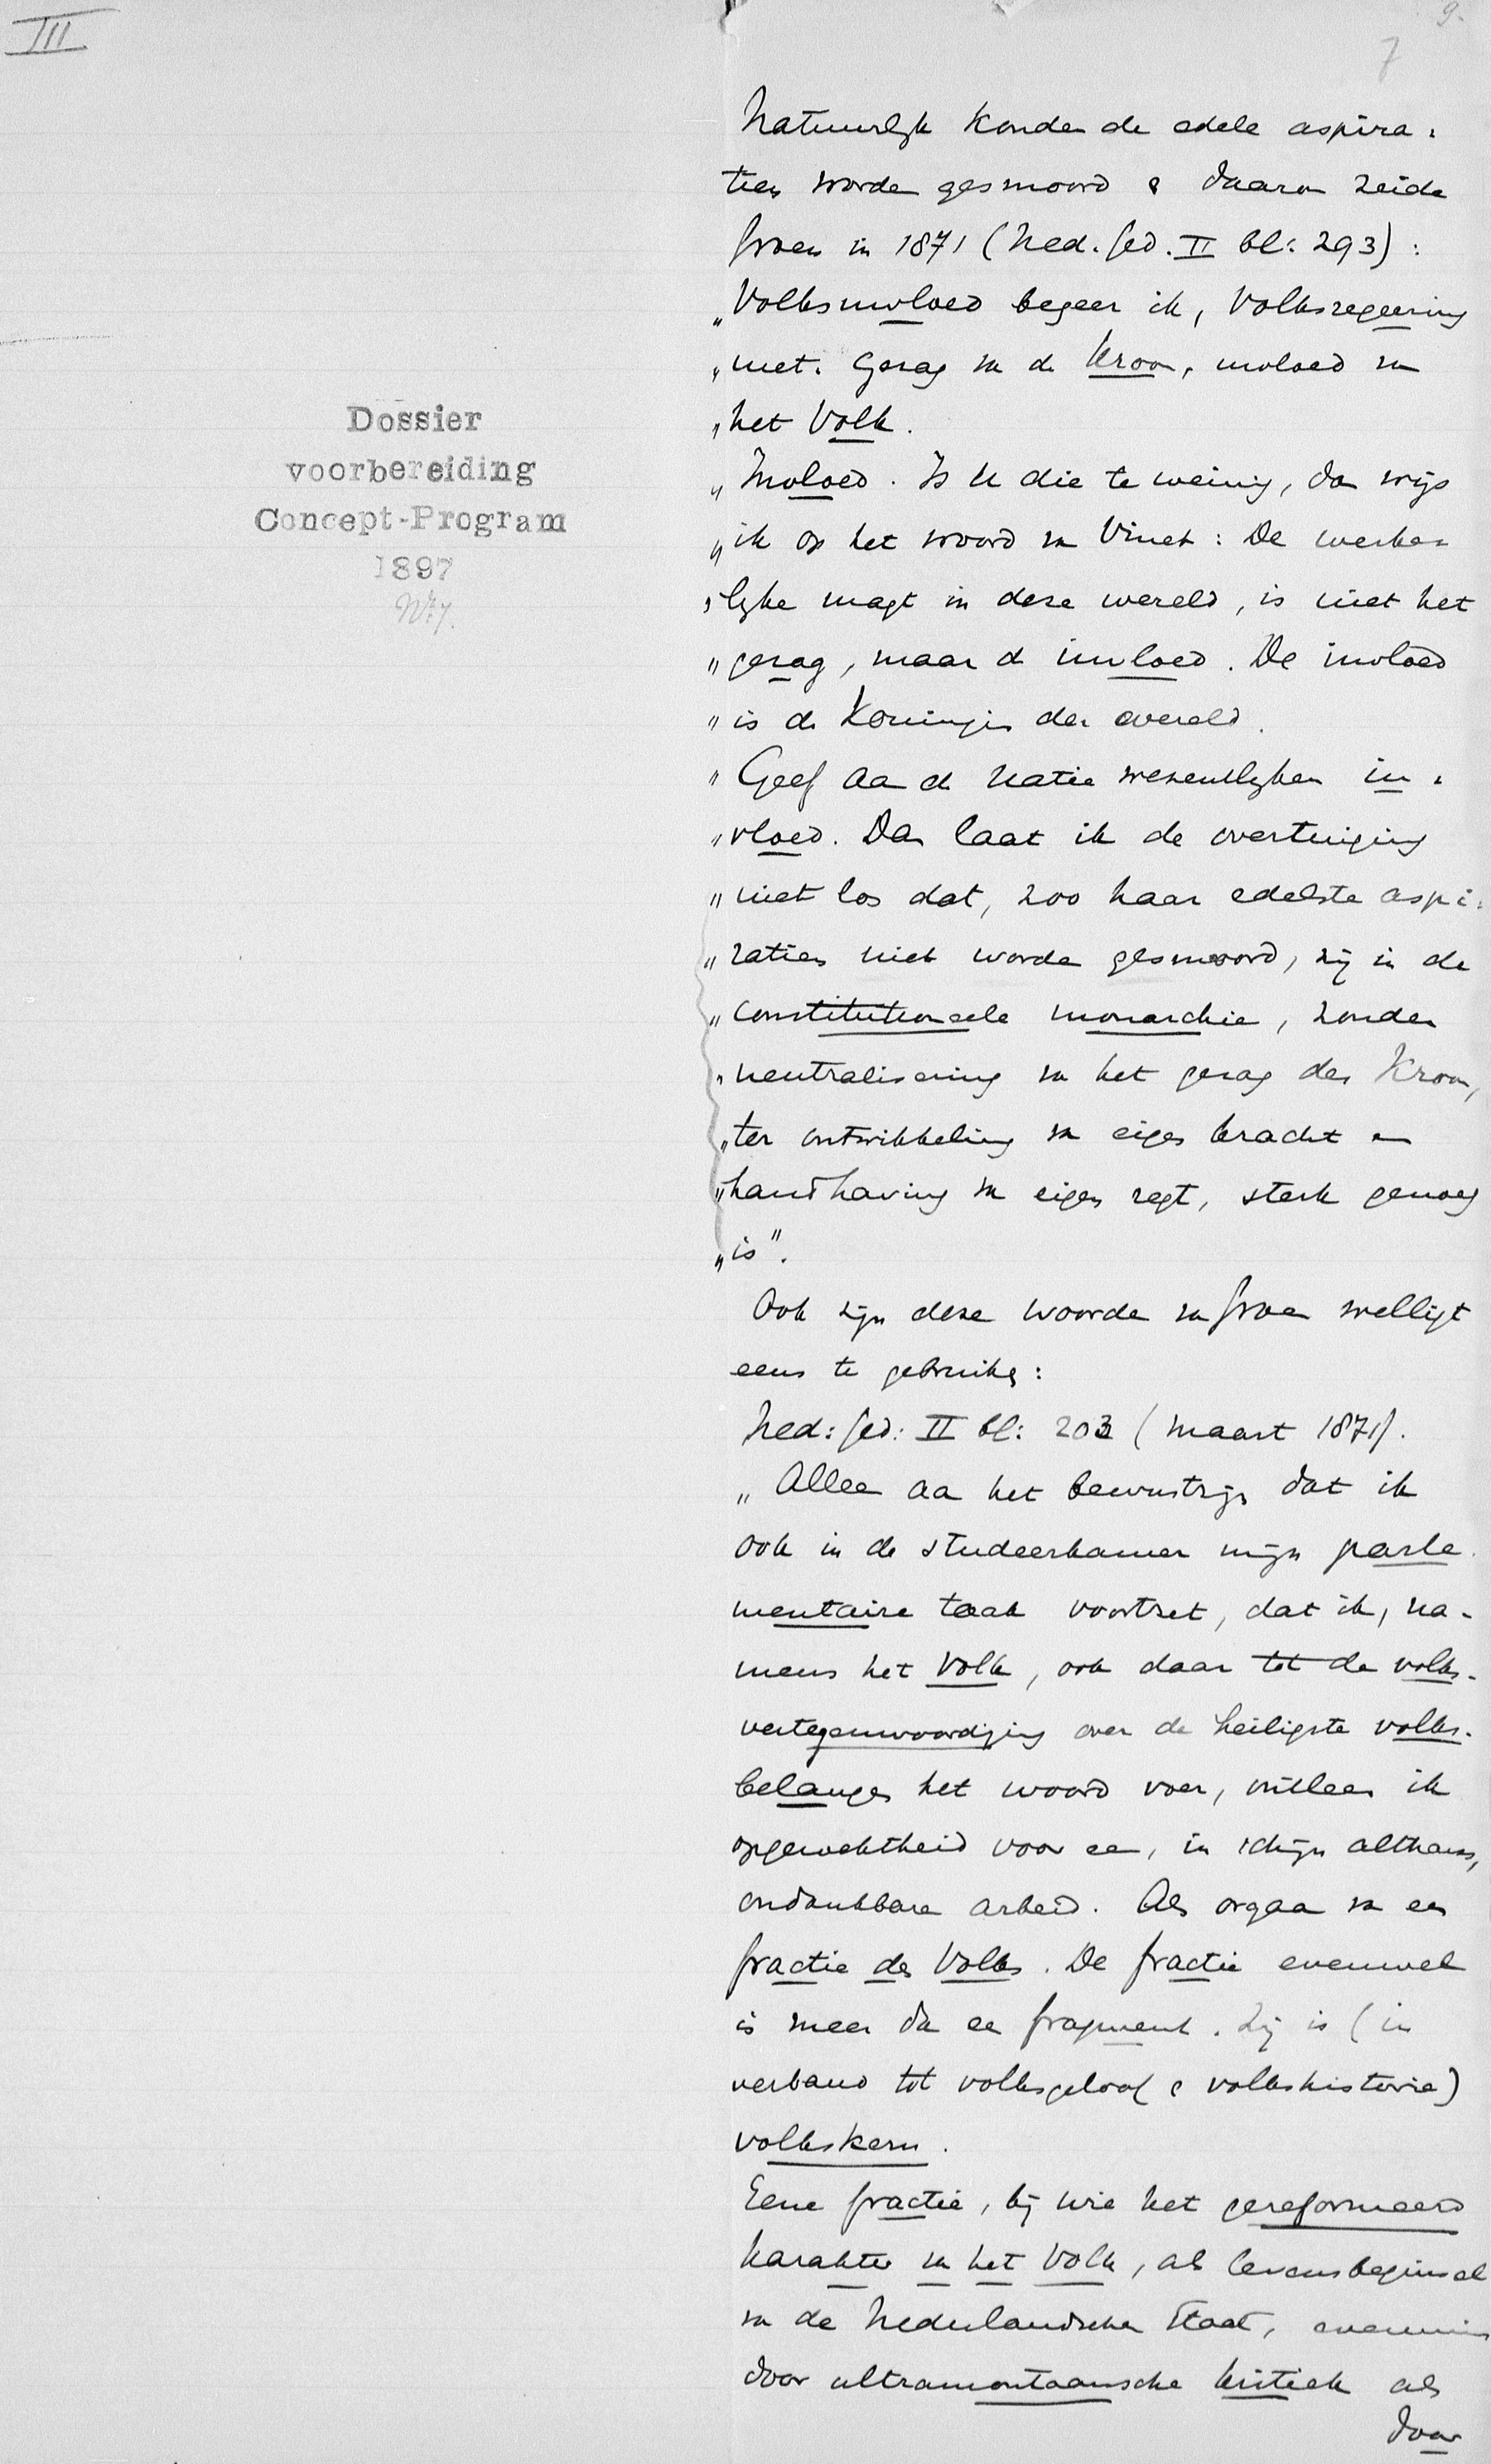 III
9.
7
Dossier
voorbereiding
Concept-Program
1897
No. 7.
Natuurlijk konden de edele aspira-
tien worden gesmoord & daarom zeide
Groen in 1871 (Ned. Ged. II bl: 293) :
„Volksinvloed begeer ik, Volksregeering
„niet. Gezag van de Kroon, invloed van
„het Volk.
„Invloed. Is U die te weinig, dan wijs
„ik op het woord van Vinet : De werke-
„lijke magt in deze wereld, is niet het
„gezag, maar de invloed. De invloed
„is de Koningin der wereld.
„Geef aan de Natie wezenlijken in-
„vloed. Dan laat ik de overtuiging
„niet los dat, zoo haar edelste aspi-
„ratien niet worden gesmoord, zij in de
„constitutioneele monarchie, zonder
„neutralisering van het gezag der Kroon,
„ter ontwikkeling van eigen kracht en
„handhaving van eigen regt, sterk genoeg
„is”.
Ook zijn deze woorden van Groen welligt
eens te gebruiken :
Ned: Ged: II bl: 203 (Maart 1871).
„Alleen aan het bewustzijn dat ik
ook in de studeerkamer mijn parle-
mentaire taak voortzet, dat ik, na-
mens het Volk, ook daar tot de volks-
vertegenwoordiging over de heiligste volks-
belangen het woord voer, ontleen ik
opgewektheid voor een, in schijn althans,
ondankbare arbeid. Als orgaan van een
fractie des Volks. De fractie evenwel
is meer dan een fragment. Zij is (in
verband tot volksgeloof & volkshistorie)
volkskern.
Eene fractie, bij wie het gereformeerd
karakter van het Volk, als levensbeginsel
van de Nederlandschen Staat, evenmin
door ultramontaansche kritiek als
door